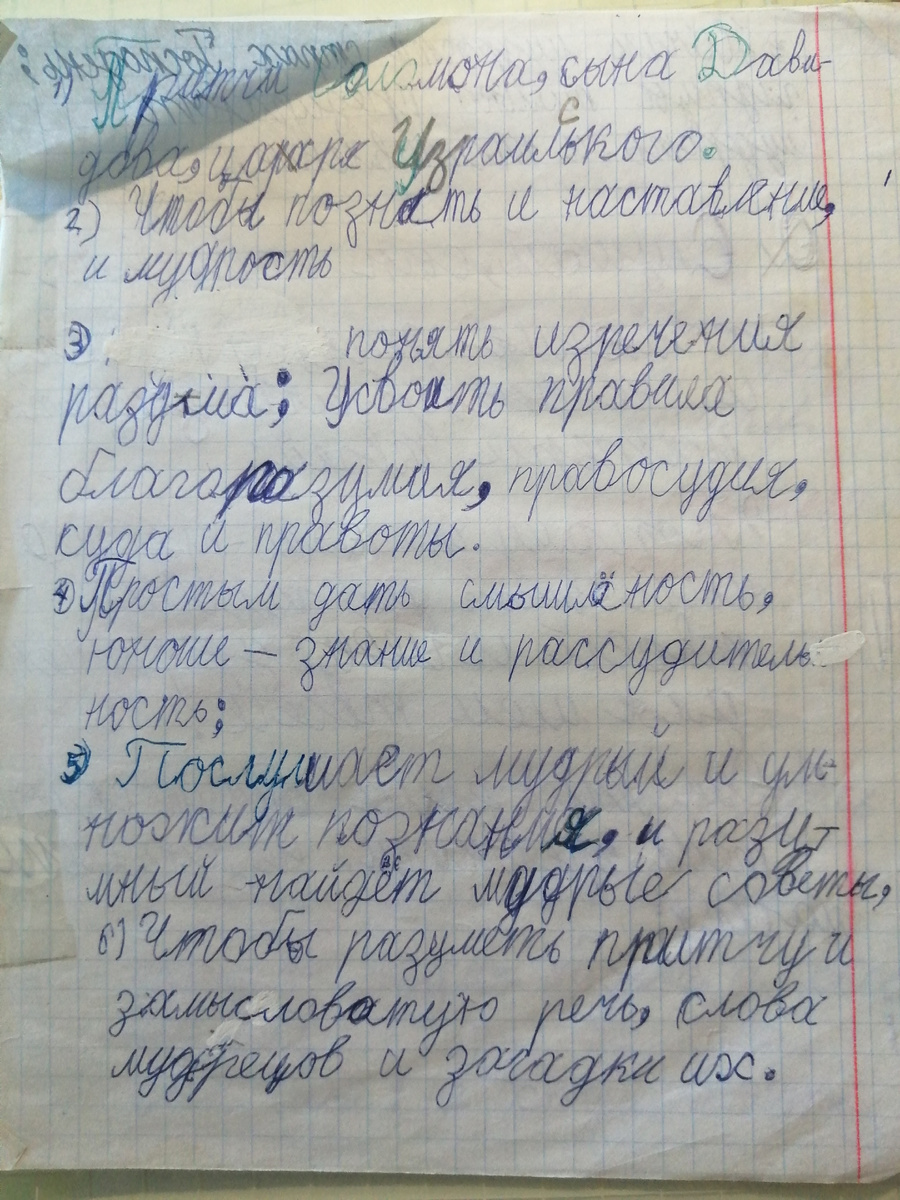 1) Притчи Соломона, сына Дави-
дова, царя Узраильского.
2) Чтобы познать и наставление,
и мудрость
3) понять изречения
разума; Усвоить правила
благоразумия, правосудия,
куда и правоты.
4) Простым дать смышлёность,
юноше — знание и рассудитель-
ность;
5) Послушает мудрый и ум-
ножит познания, и разу-
мный найдёт мудрые советы,
6) Чтобы разуметь притчу и
замысловатую речь, слова
мудрецов и загадки их.